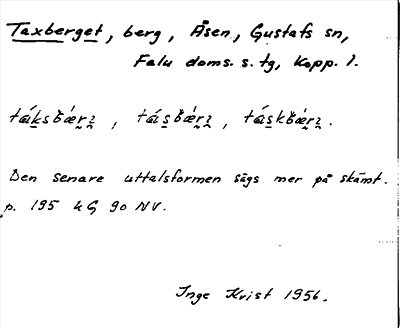 Taxberget, berg, Åsen, Gustafs sn,
Falu doms. s. tg, Kopp. l.
táksbä́rʒ, tásbä́rʒ, táskbä́rʒ.
Den senare uttalsformen sägs mer på skämt.
p. 195 k G 90 NV.
Inge Kvist 1956.